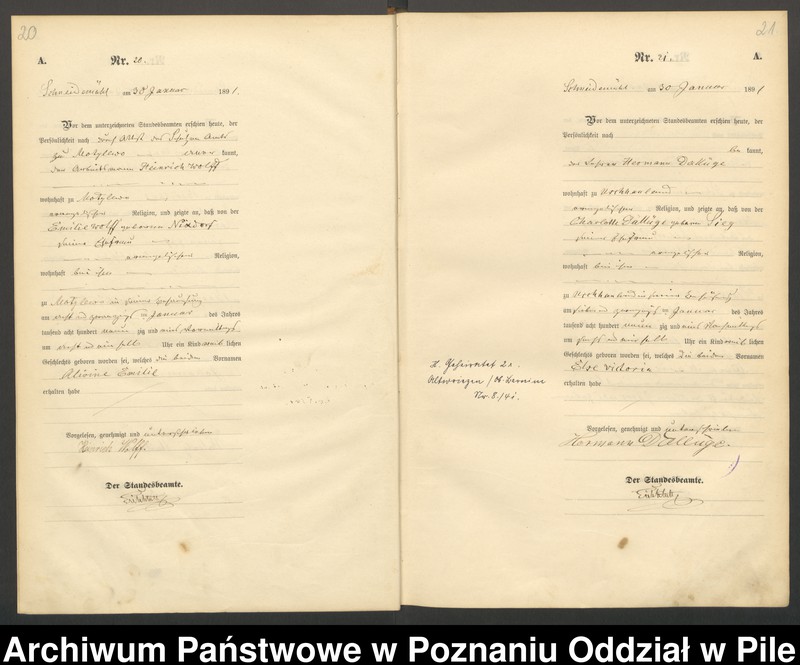 20
A.
Nr. 20.
Schneidemühl am 30 Januar 1891.
Vor dem unterzeichneten Standesbeamten erschien heute, der
Persönlichkeit nach durch Attest des Schulzen Amts
zu Motylewo kannt,
der Arbeitsmann Heinrich Wolff
wohnhaft zu Motylewo
evangelischer Religion, und zeigte an, daß von der
Emilie Wolff geborenen
seiner Ehefrau
evangelischer Religion,
wohnhaft bei ihm
zu Motylewo in seiner Behausung
am Januar des Jahres
tausend acht hundert neun zig und eins Vormittags
um ein halb Uhr ein Kind weib lichen
Geschlechts geboren worden sei, welches die beiden Vornamen
Emilie
erhalten habe
Vorgelesen, genehmigt und unterschrieben
Heinrich Wolff.
Der Standesbeamte.
21
Nr. 21.
A.
Schneidemühl am 30 Januar 1891
Vor dem unterzeichneten Standesbeamten erschien heute, der
Persönlichkeit nach
be kannt,
der Lehrer Hermann Dallüge
wohnhaft zu Uschhauland
evangelischer Religion, und zeigte an, daß von der
Charlotte Dallüge geborene Sieg
seiner Ehefrau
evangelischer Religion,
wohnhaft bei ihm
zu Uschhauland in seiner Behausung
am sieben und zwanzigsten Januar des Jahres
tausend acht hundert neun zig und eins Nachmittags
um fünf ein halb Uhr ein Kind weib lichen
Geschlechts geboren worden sei, welches die beiden Vornamen
Else Victoria
erhalten habe
I. Geheiratet
Nr. 8/41.
Vorgelesen, genehmigt und unterschrieben
Hermann Dallüge.
Der Standesbeamte.
Archiwum Państwowe w Poznaniu Oddział w Pile